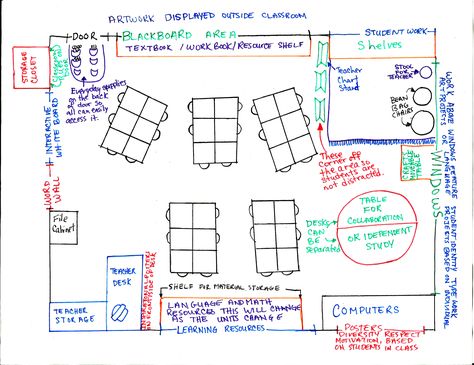 ARTWORK DISPLAYED OUTSIDE CLASSROOM
DOOR
BLACKBOARD AREA
TEXTBOOK / WORKBOOK / RESOURCE SHELF
STUDENT WORK
Shelves
STORAGE
CLOSET
DOOR
Everyday supplies
on the back
door so
all can easily
access it.
Teacher
Chart
Stand
STOOL
FOR
TEACHER
BEAN
BAG
CHAIRS
INTERACTIVE
WHITE BOARD
WORD
WALL
These
corner off
the area so
students are
not distracted.
WINDOWS
WORK ABOVE WINDOWS FEATURE STUDENT IDENTITY TYPE WORK
ART PROJECTS OR LANGUAGE PROJECTS BASED ON INDIVIDUAL
TABLE
File
Cabinet
DESKS
CAN
BE
Separated
TABLE
FOR
COLLABORATION
OR IDEPENDENT
STUDY
TEACHER
DESK
ON FRONTSIDE OF DESK
TEACHER
STORAGE
SHELF FOR MATERIAL STORAGE
LANGUAGE AND MATH
RESOURCES THIS WILL CHANGE
AS THE UNITS CHANGE
LEARNING RESOURCES
COMPUTERS
POSTERS
DIVERSITY RESPECT
MOTIVATION, BASED
ON STUDENTS IN CLASS